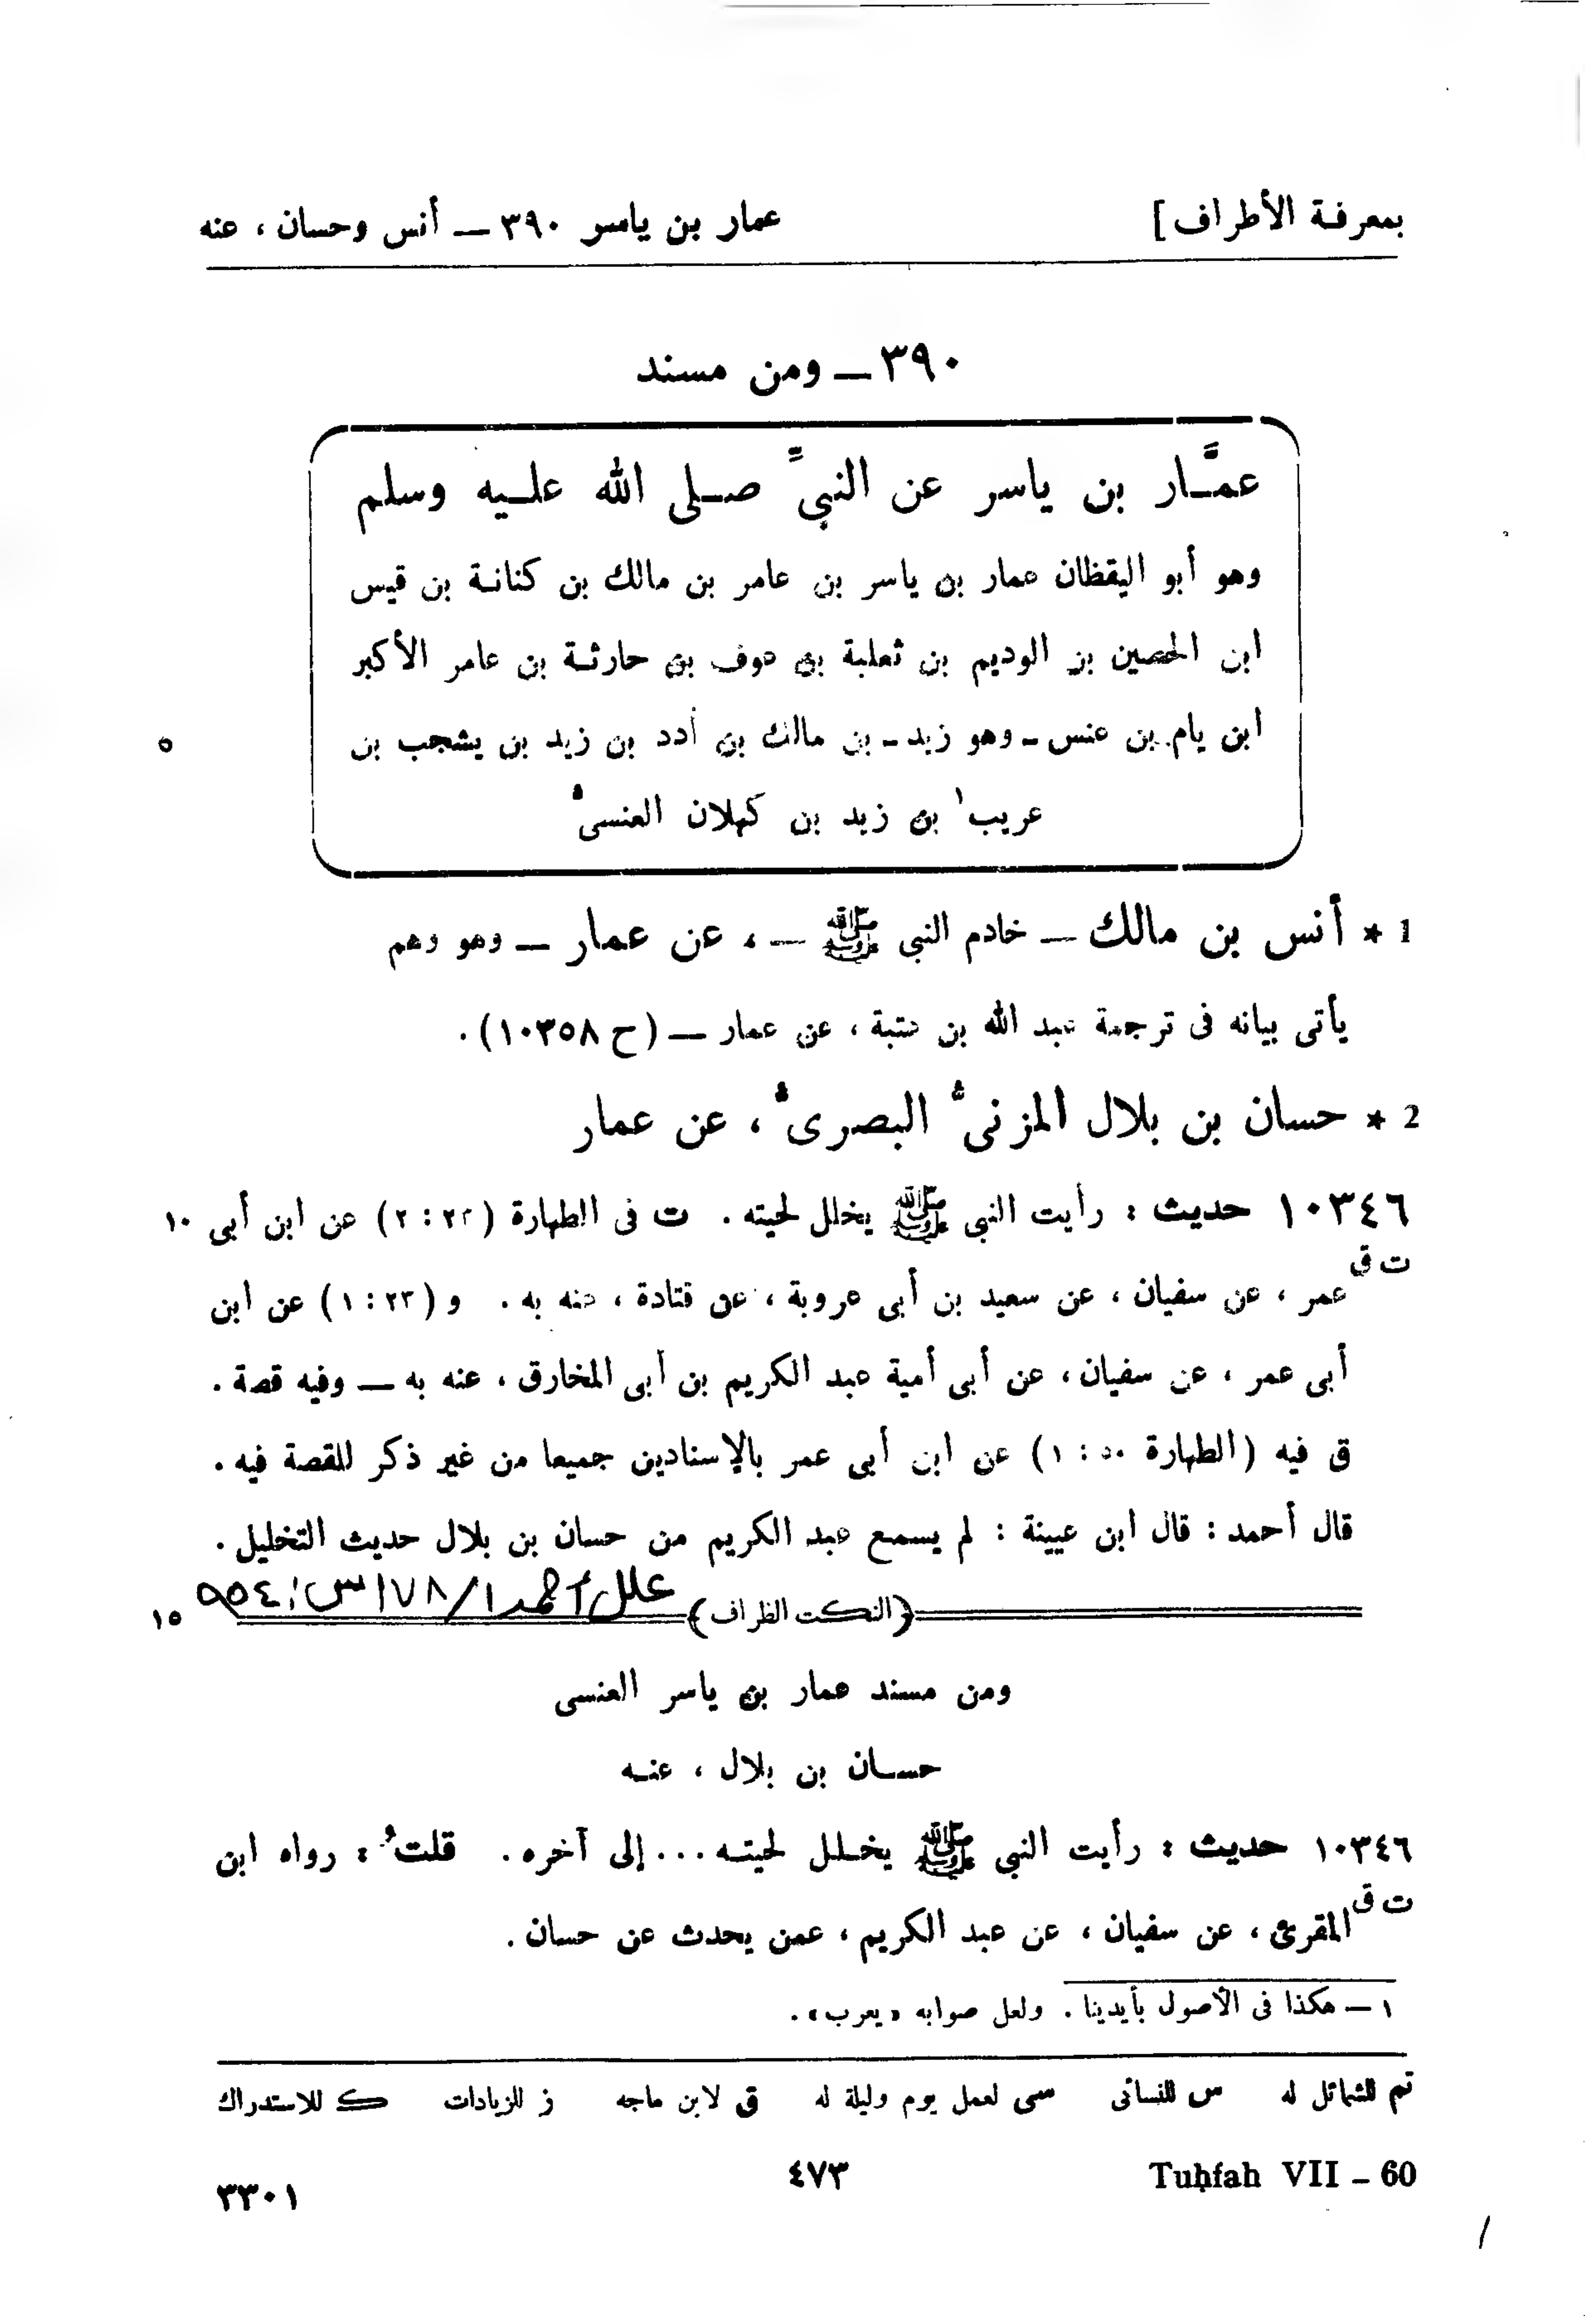 بمعرفة الأطراف] عمار بن ياسر ٣٩٠ — أنس وحسان ، عنه
٣٩٠ — ومن مسند
عمَّـار بن ياسر عن النبيِّ صـلى الله علـيه وسلم
وهو أبو اليقظان عمار بن ياسر بن عامر بن مالك بن كنانـة بن قيس
ابن الحصين بن الوديم بن ثعلبة بن عوف بن حارثـة بن عامر الأكبر
ابن يام بن عنس - وهو زيد - بن مالك بن أدد بن زيد بن يشجب بن
٥
عريب١ بن زيد بن كهلان العنسىُّ
1 * أنس بن مالك — خادم النبي ﷺ — ، عن عمار — وهو وهم
يأتى بيانه فى ترجمة عبد الله بن عتبة ، عن عمار — (ح ١٠٣٥٨) .
2 * حسان بن بلال المزنىُّ البصرىُّ ، عن عمار
١٠٣٤٦ حديث : رأيت النبي ﷺ يخلل لحيته . ت فى الطهارة (٢٣ : ٢) عن ابن أبى ١٠
ت ق
عمر ، عن سفيان ، عن سعيد بن أبى عروبة ، عن قتادة ، عنه به . و (٢٣ : ١) عن ابن
أبى عمر ، عن سفيان ، عن أبى أمية عبد الكريم بن أبى المخارق ، عنه به — وفيه قصة .
ق فيه (الطهارة ٥٠ : ١) عن ابن أبى عمر بالإسنادين جميعا من غير ذكر للقصة فيه .
قال أحمد : قال ابن عيينة : لم يسمع عبد الكريم من حسان بن بلال حديث التخليل .
علل أحمد ١/١٧٨ س: ٩٥٤
{النكت الظراف} ١٥
ومن مسند عمار بن ياسر العنسى
حسـان بن بلال ، عنـه
١٠٣٤٦ حديث : رأيت النبي ﷺ يخـلل لحيتـه ... إلى آخره . قلتُ : رواه ابن
ت ق
المقرئ ، عن سفيان ، عن عبد الكريم ، عمن يحدث عن حسان .
١ — هكذا فى الأصول بأيدينا . ولعل صوابه «يعرب» .
تم للشمائل له س للنسائى سى لعمل يوم وليلة له ق لابن ماجه ز للزيادات ك للاستدراك
Tuḥfah VII – 60 ٤٧٣
٣٣٠١